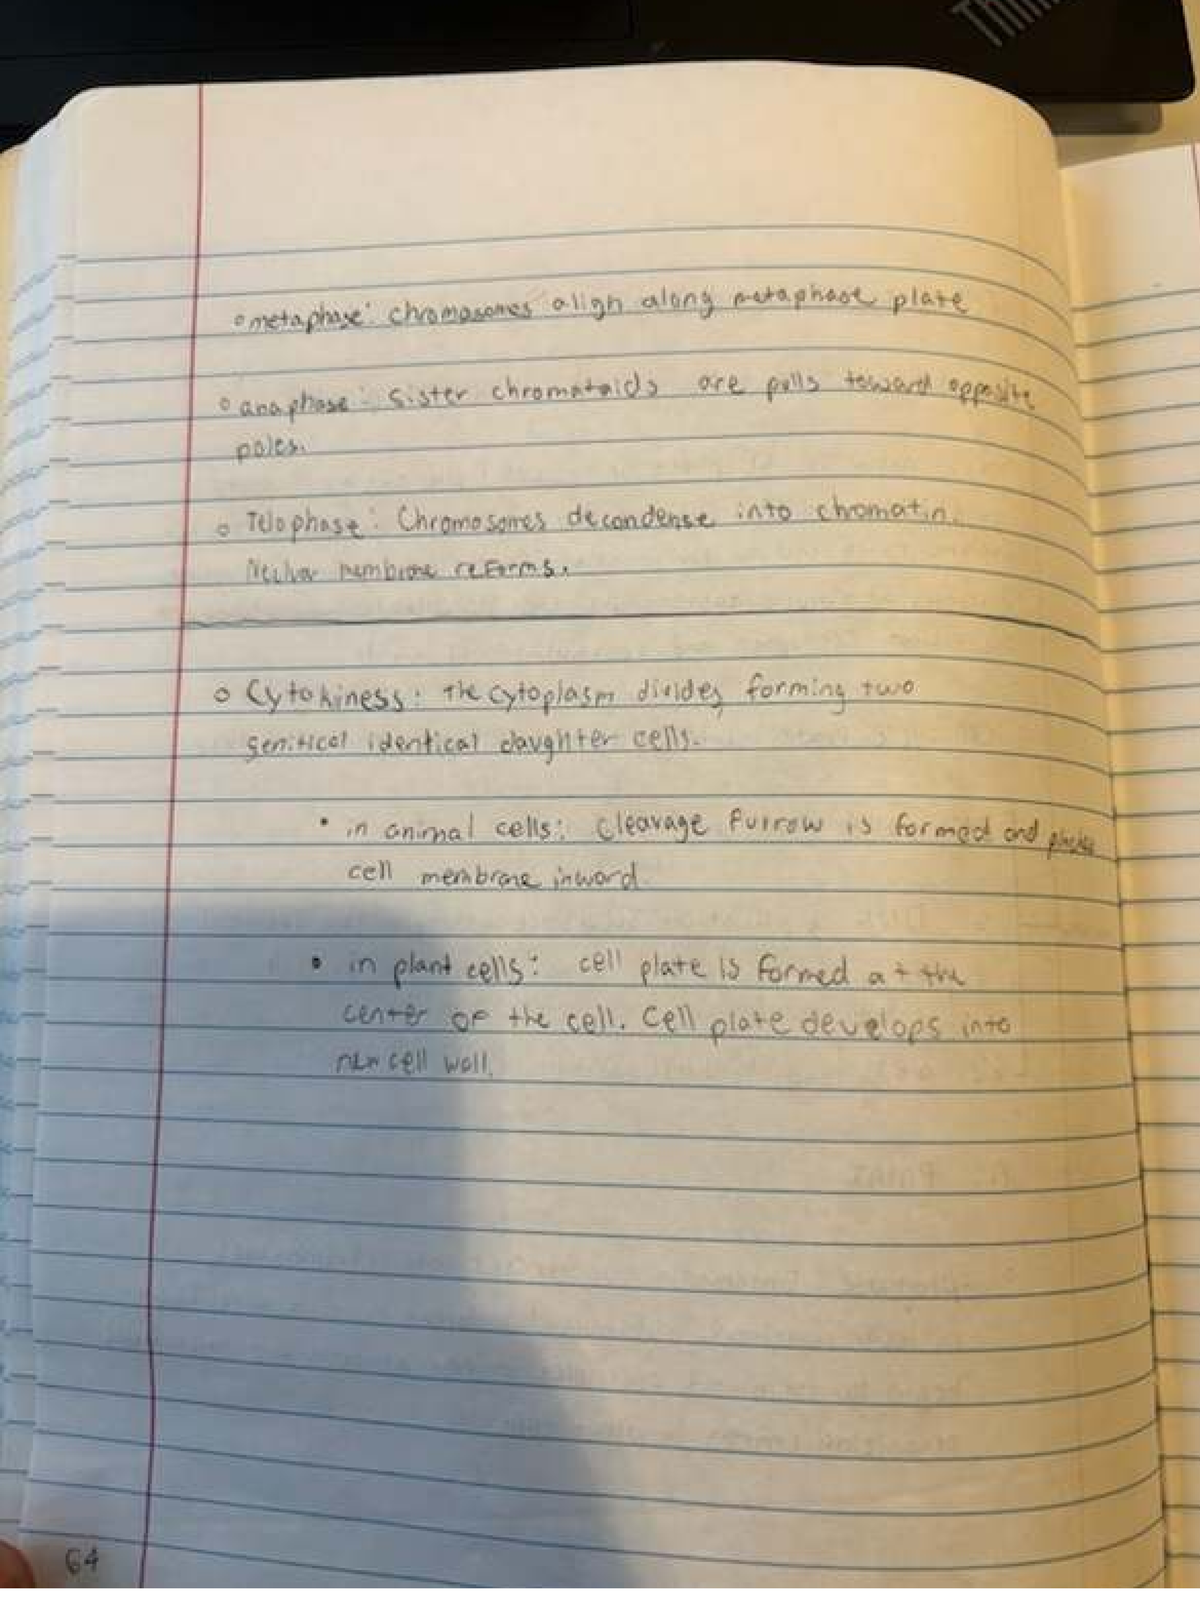 Thin
◦ metaphase: chromosomes align along metaphase plate
◦ anaphase: Sister chromataids are pulls toward opposite
poles.
◦ Telophase: Chromosomes decondense into chromatin.
membrane reforms.
◦ Cytokiness: the cytoplasm divides, forming two
identical daughter cells.
• in animal cells: cleavage furrow is formed and
cell membrane inward.
• in plant cells: cell plate is formed at the
center of the cell. Cell plate develops into
new cell wall.
64